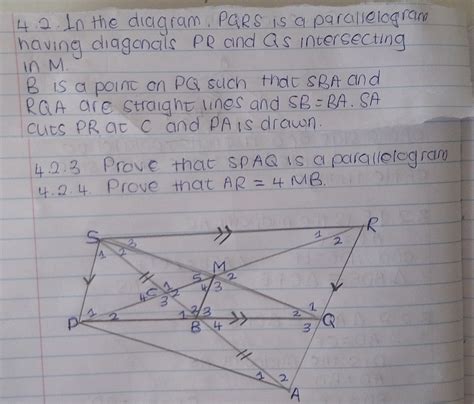 4.2. In the diagram, PQRS is a parallelogram
having diagonals PR and QS intersecting
in M.
B is a point on PQ such that SBA and
RQA are straight lines and SB = BA. SA
cuts PR at C and PA is drawn.
4.2.3 Prove that SPAQ is a parallelogram
4.2.4. Prove that AR = 4 MB.
S 1 2 3
1 2 R
M 5 2 4 3
C 4 2 3
P 1 2
1 2 3 B 4
2 1 Q 3
1 2
A